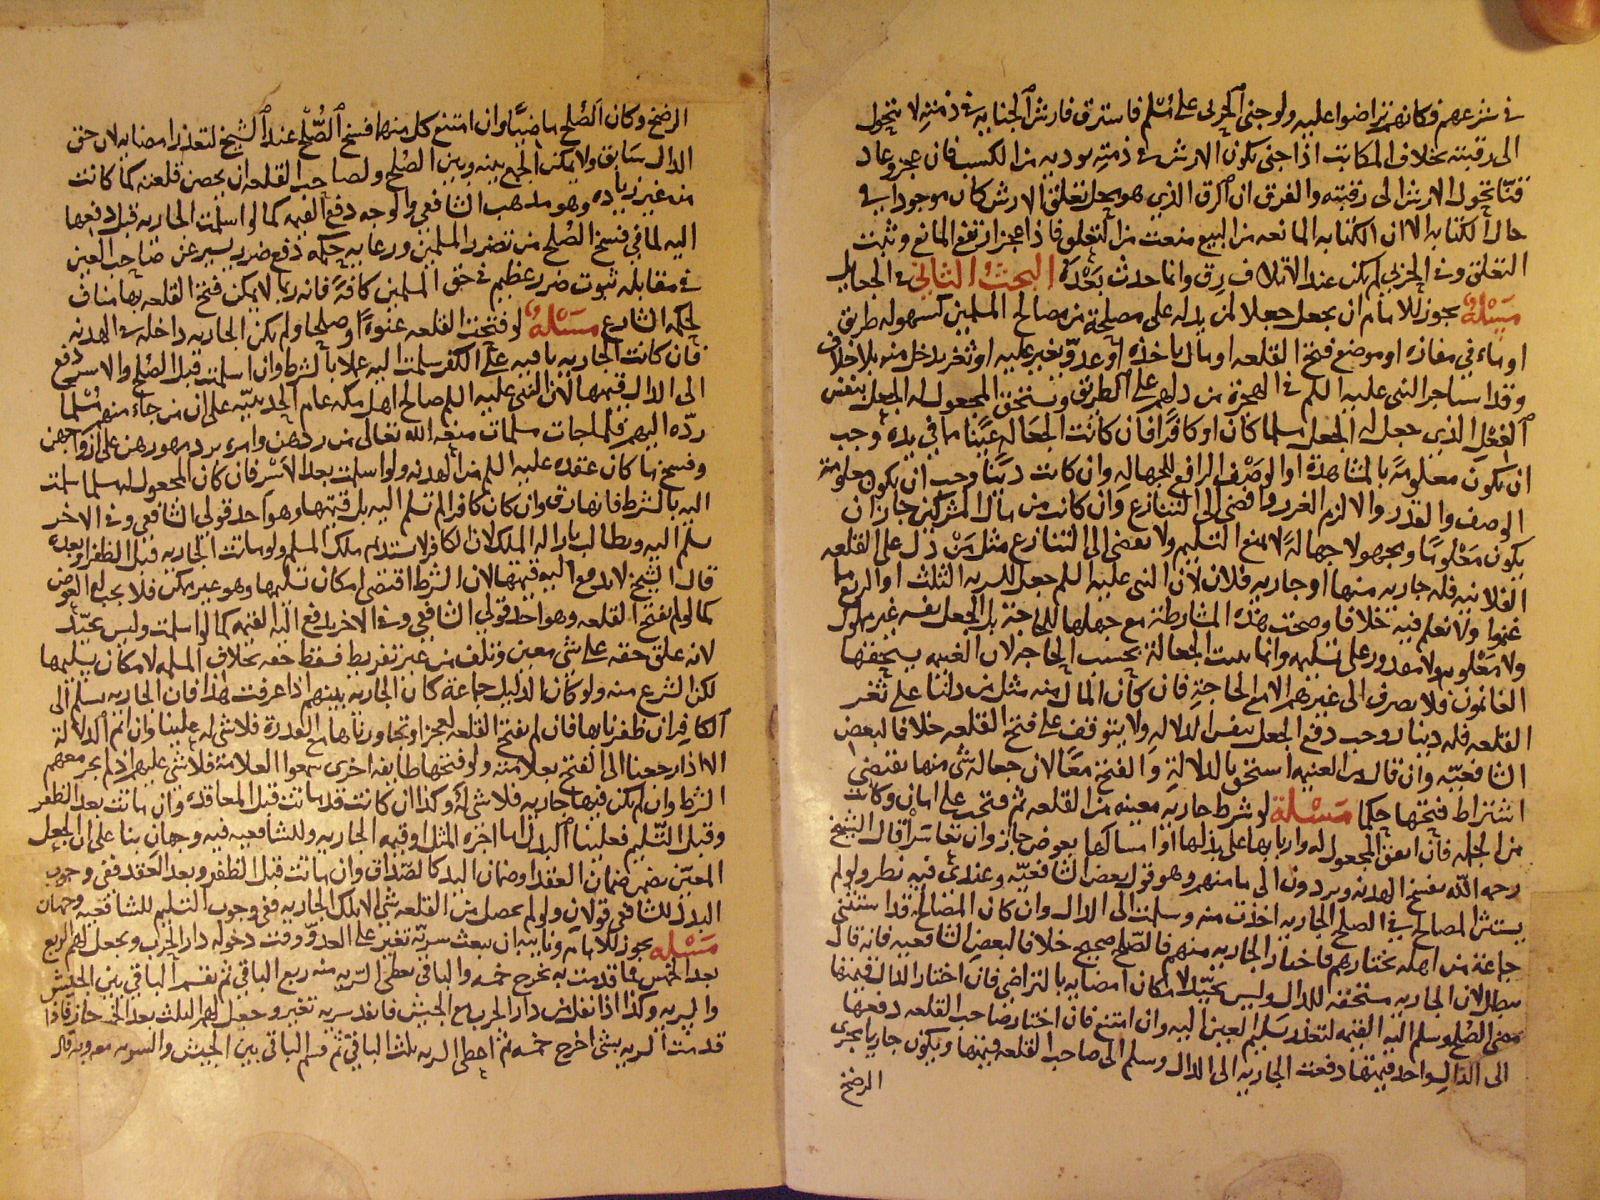 في شرعهم فكانهم تراضوا عليه ولو جنى الحربي على مسلم فاسترق فارش الجنايه في ذمته لا يتحول
الى رقبته بخلاف المكاتب اذا جنى يكون الارش في ذمته يوديه من الكسب فان عجز وعاد
قنا تحول الارش الى رقبته والفرق ان الرق الذي هو محل تعلق الارش كان موجودا في
حال الكتابه الا ان الكتابه المانعه من البيع منعت من التعلق فاذا عجز ارتفع المانع وثبت
التعلق وفي الحربي لم يكن عند الاتلاف رق وانما حدث بعده البحث الثاني في الجعايل
مسئلة يجوز للامام ان يجعل جعلا لمن يدله على مصلحة من مصالح المسلمين كسهوله طريق
او ماء في مفازه او موضع فتح القلعه او مال ياخذه او عدو يغير عليه او ثغر يدخل منه بلا خلاف
وقد استاجر النبي عليه السلم في الهجرة من دلهم على الطريق ويستحق المجعول له الجعل بنفس
الفعل الذي جعل له الجعل مسلما كان او كافرا فان كانت الجعاله عينا مما في يده وجب
ان يكون معلومة بالمشاهدة او الوصف الرافع للجهاله وان كانت دينا وجب ان يكون معلومة
الوصف والقدر والا لزم الغرر وافضى الى التنازع وان كانت من مال المشركين جاز ان
يكون معلوما ومجهولا جهالة لا تمنع التسليم ولا تفضي الى التنازع مثل من دل على القلعه
الفلانيه فله جاريه منها او جاريه فلان لان النبي عليه السلم جعل للسريه الثلث او الربع مما
غنموا ولا نعلم فيه خلافا وصحت هذه المشارطة مع جهلها للحاجة بل الجعل نفسه غير مملوك
ولا معلوم ولا مقدور على تسليمه وانما يثبت الجعالة بحسب الحاجه لان الغنيمه يستحقها
الغانمون فلا يصرف الى غيرهم الا مع الحاجة فان كان المال منه مثل من دلنا على ثغر
القلعه فله دينار وجب دفع الجعل بنفس الدلاله ولا يتوقف على فتح القلعه خلافا لبعض
الشافعيه وان قال من الغنيمه استحق بالدلالة والفتح معا لان جعاله شى منها يقتضي
اشتراط فتحها حكما مسئلة لو شرط جارية معينه من القلعه ثم فتحت على امان وكانت
من الجمله فان اتفق المجعول له واربابها على بذلها او امساكها بعوض جاز وان تعاسرا قال الشيخ
رحمه الله يفسخ الهدنه ويردون الى مامنهم وهو قول بعض الشافعيه وعندي فيه نظر ولو لم
يستثن المصالح في الصلح الجاريه اخذت منه وسلمت الى الدال وان كان المصالح قد استثنى
جماعة من اهله يختارهم فاختار الجاريه منهم فالصلح صحيح خلافا لبعض الشافعيه فانه قال
يبطل لان الجاريه مستحقه للدال وليس بجيد لامكان امضايه بالتراضي فان اختار الدال قيمتها
مضى الصلح وسلم اليه القيمه لتعذر تسليم العين اليه وان امتنع فان اختار صاحب القلعه دفعها
الى الدال واخذ قيمتها دفعت الجاريه الى الدال وسلم الى صاحب القلعه قيمتها ويكون جاريا مجرى
الرضخ
الرضخ وكان الصلح ماضيا وان امتنع كل منهما فسخ الصلح عند الشيخ لتعذر امضايه لان حق
الدال سابق ولا يمكن الجمع بينه وبين الصلح ولصاحب القلعه ان يحصن قلعته كما كانت
من غير زياده وهو مذهب الشافعي والوجه دفع القيمه كما لو اسلمت الجاريه قبل دفعها
اليه لما في فسخ الصلح من تضرر المسلمين ورعايه حكمه دفع ضرر يسير عن صاحب العين
في مقابله ثبوت ضرر عظيم في حق المسلمين كافة فانه ربما لا يمكن فتح القلعه بها مناف
لحكمه الشارع مسئلة لو فتحت القلعه عنوة او صلحا ولم يكن الجاريه داخله في الهدنه
فان كانت الجاريه باقيه على الكفر سلمت اليه عملا بالشرط وان اسلمت قبل الصلح والاسر دفع
الى الدال قيمتها لان النبي عليه السلم صالح اهل مكه عام الحديبيه على ان من جاء منهم مسلما
رده اليهم فلما جات مسلمات منعه الله تعالى من ردهن وامره برد مهورهن على ازواجهن
وفسخ ما كان عقده عليه السلم من الهدنه ولو اسلمت بعد الاسر فان كان المجعول له مسلما سلمت
اليه بالشرط فانها رق وان كان كافرا لم تسلم اليه بل قيمتها وهو احد قولي الشافعي وفي الاخر
يسلم اليه ويطالب بازاله الملك لان الكافر لا يستديم ملك المسلم ولو ماتت الجاريه قبل الظفر او بعده
قال الشيخ لا يدفع اليه قيمتها لان الشرط اقتضى امكان تسليمها وهو غير ممكن فلا يجب له العوض
كما لو لم يفتح القلعه وهو احد قولي الشافعي وفي الاخر يدفع اليه القيمه كما لو اسلمت وليس بجيد
لانه علق حقه على شى معين وتلف من غير تفريط فسقط حقه بخلاف المسلمه لامكان تسليمها
لكن الشرع منعه ولو كان الدليل جماعة كان الجاريه بينهم اذا عرفت هذا فان الجاريه يسلم الى
الكافر ان ظفرنا بها فان لم يفتح القلعه لعجز او تجاوزناها مع القدرة فلا شى له علينا وان اتم الدلالة
الا اذا رجعنا الى الفتح بعلامته ولو فتحها طايفه اخرى سمعوا العلامة فلا شى عليهم اذ لم يجر معهم
الشرط وان لم يكن فيها جاريه فلا شى له وكذا ان كانت قد ماتت قبل المعاقده وان ماتت بعد الظفر
وقبل التسليم فعلينا البدل اما اجره المثل او قيمه الجاريه وللشافعيه فيه وجهان بنا على ان الجعل
المعين يضمن ضمان العقد او ضمان اليد كالصداق وان ماتت قبل الظفر وبعد العقد ففي وجوب
البدل للشافعي قولان ولو لم يحصل من القلعه شى الا تلك الجاريه ففي وجوب التسليم للشافعيه وجهان
مسئله يجوز للامام ونايبه ان يبعث سرية تغير على العدو وقت دخوله دار الحرب ويجعل لهم الربع
بعد الخمس فما قدمت به يخرج خمسه والباقي يعطى السريه منه ربع الباقي ثم يقسم الباقي بين الجيش
والسريه وكذا اذا نفل من دار الحرب مع الجيش فانفذ سريه تغير وجعل لهم الثلث بعد الخمس جاز فاذا
قدمت السريه بشى اخرج خمسه ثم اعطى السريه ثلث الباقي ثم قسم الباقي بين الجيش والسريه معه وبه قال